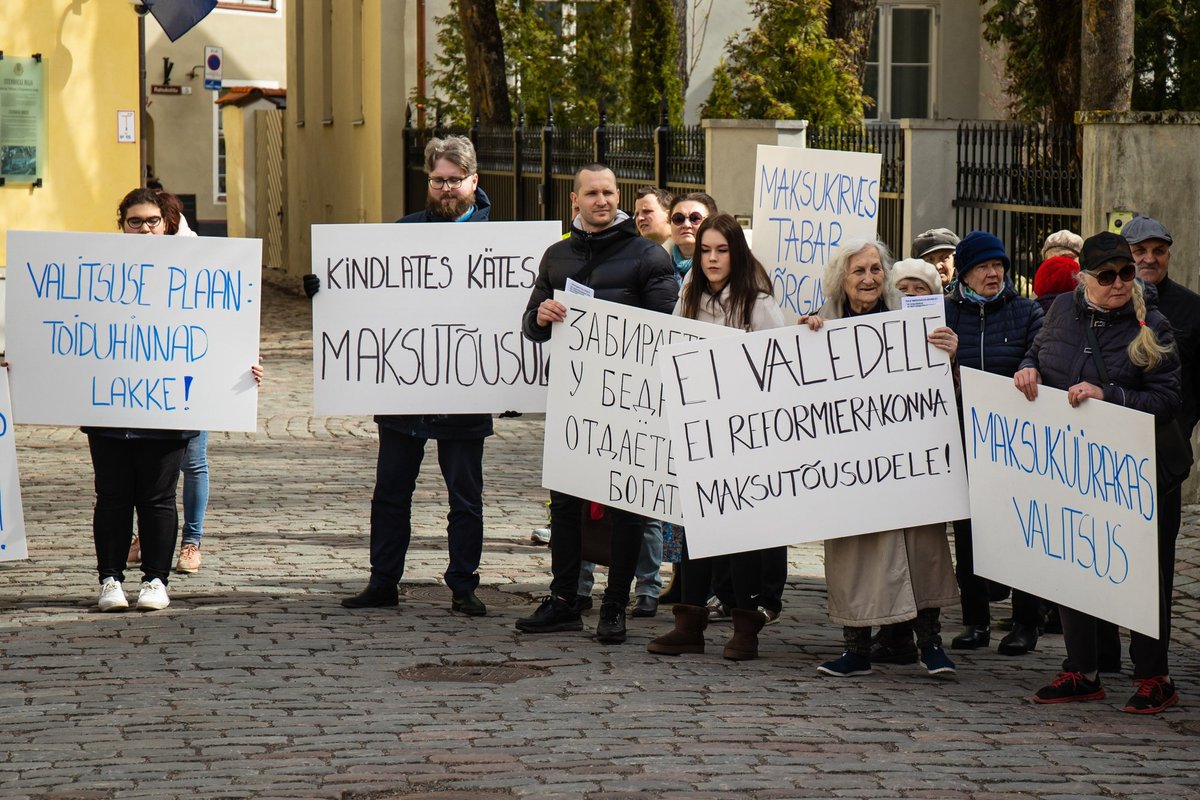 VALITSUSE PLAAN:
TOIDUHINNAD
LAKKE!
KINDLATES KÄTES
MAKSUTÕUSUD
ЗАБИРАЕТ
У БЕДН
ОТДАЁТ
БОГАТ
MAKSUKIRVES
TABAB
EI VALEDELE,
EI REFORMIERAKONNA
MAKSUTÕUSUDELE!
MAKSUKÜÜRAKAS
VALITSUS